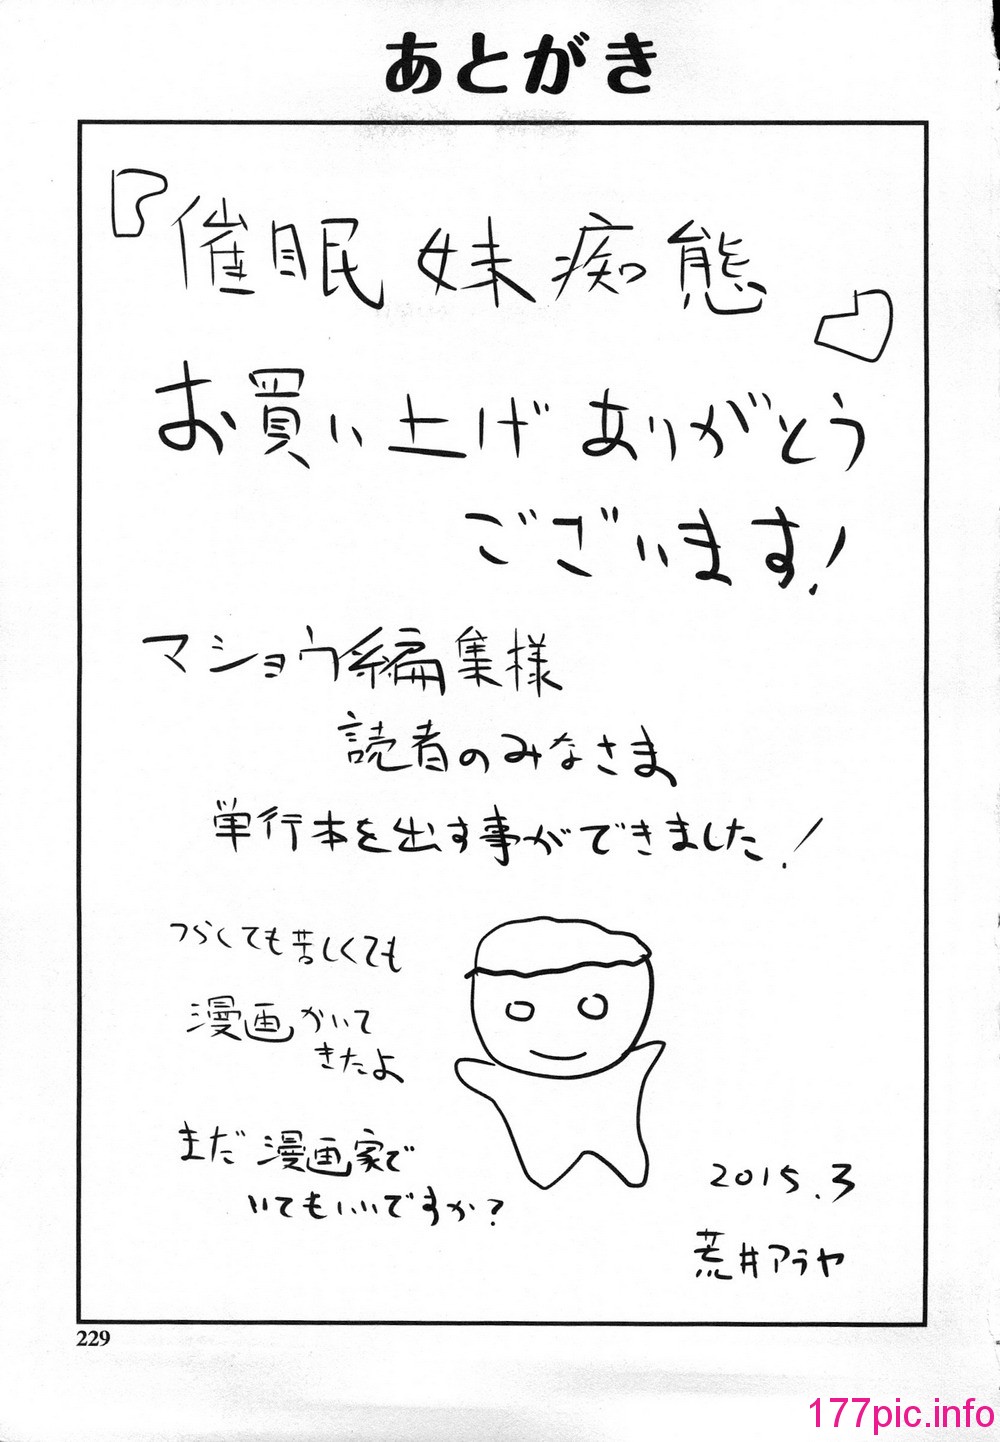 あとがき
『催眠妹痴態』
お買い上げありがとう
ございます!
マショウ編集様
読者のみなさま
単行本を出す事ができました!
つらくても苦しくても
漫画かいて
きたよ
まだ漫画家で
いてもいいですか?
2015.3
荒井アラヤ
229
177pic.info